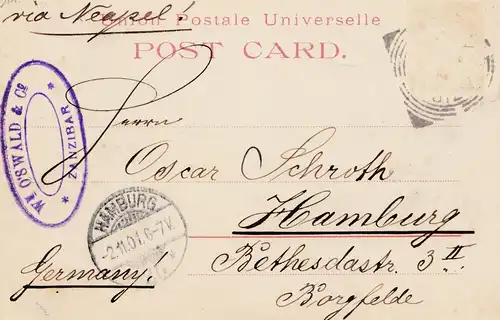 via Neapel!
Union Postale Universelle
POST CARD.
WM OSWALD & Co
* ZANZIBAR *
Herrn
Oscar Schroth
Hamburg
HAMBURG
-2.11.01.6-7V.
Germany!
Bethesdastr. 3 II
Borgfelde